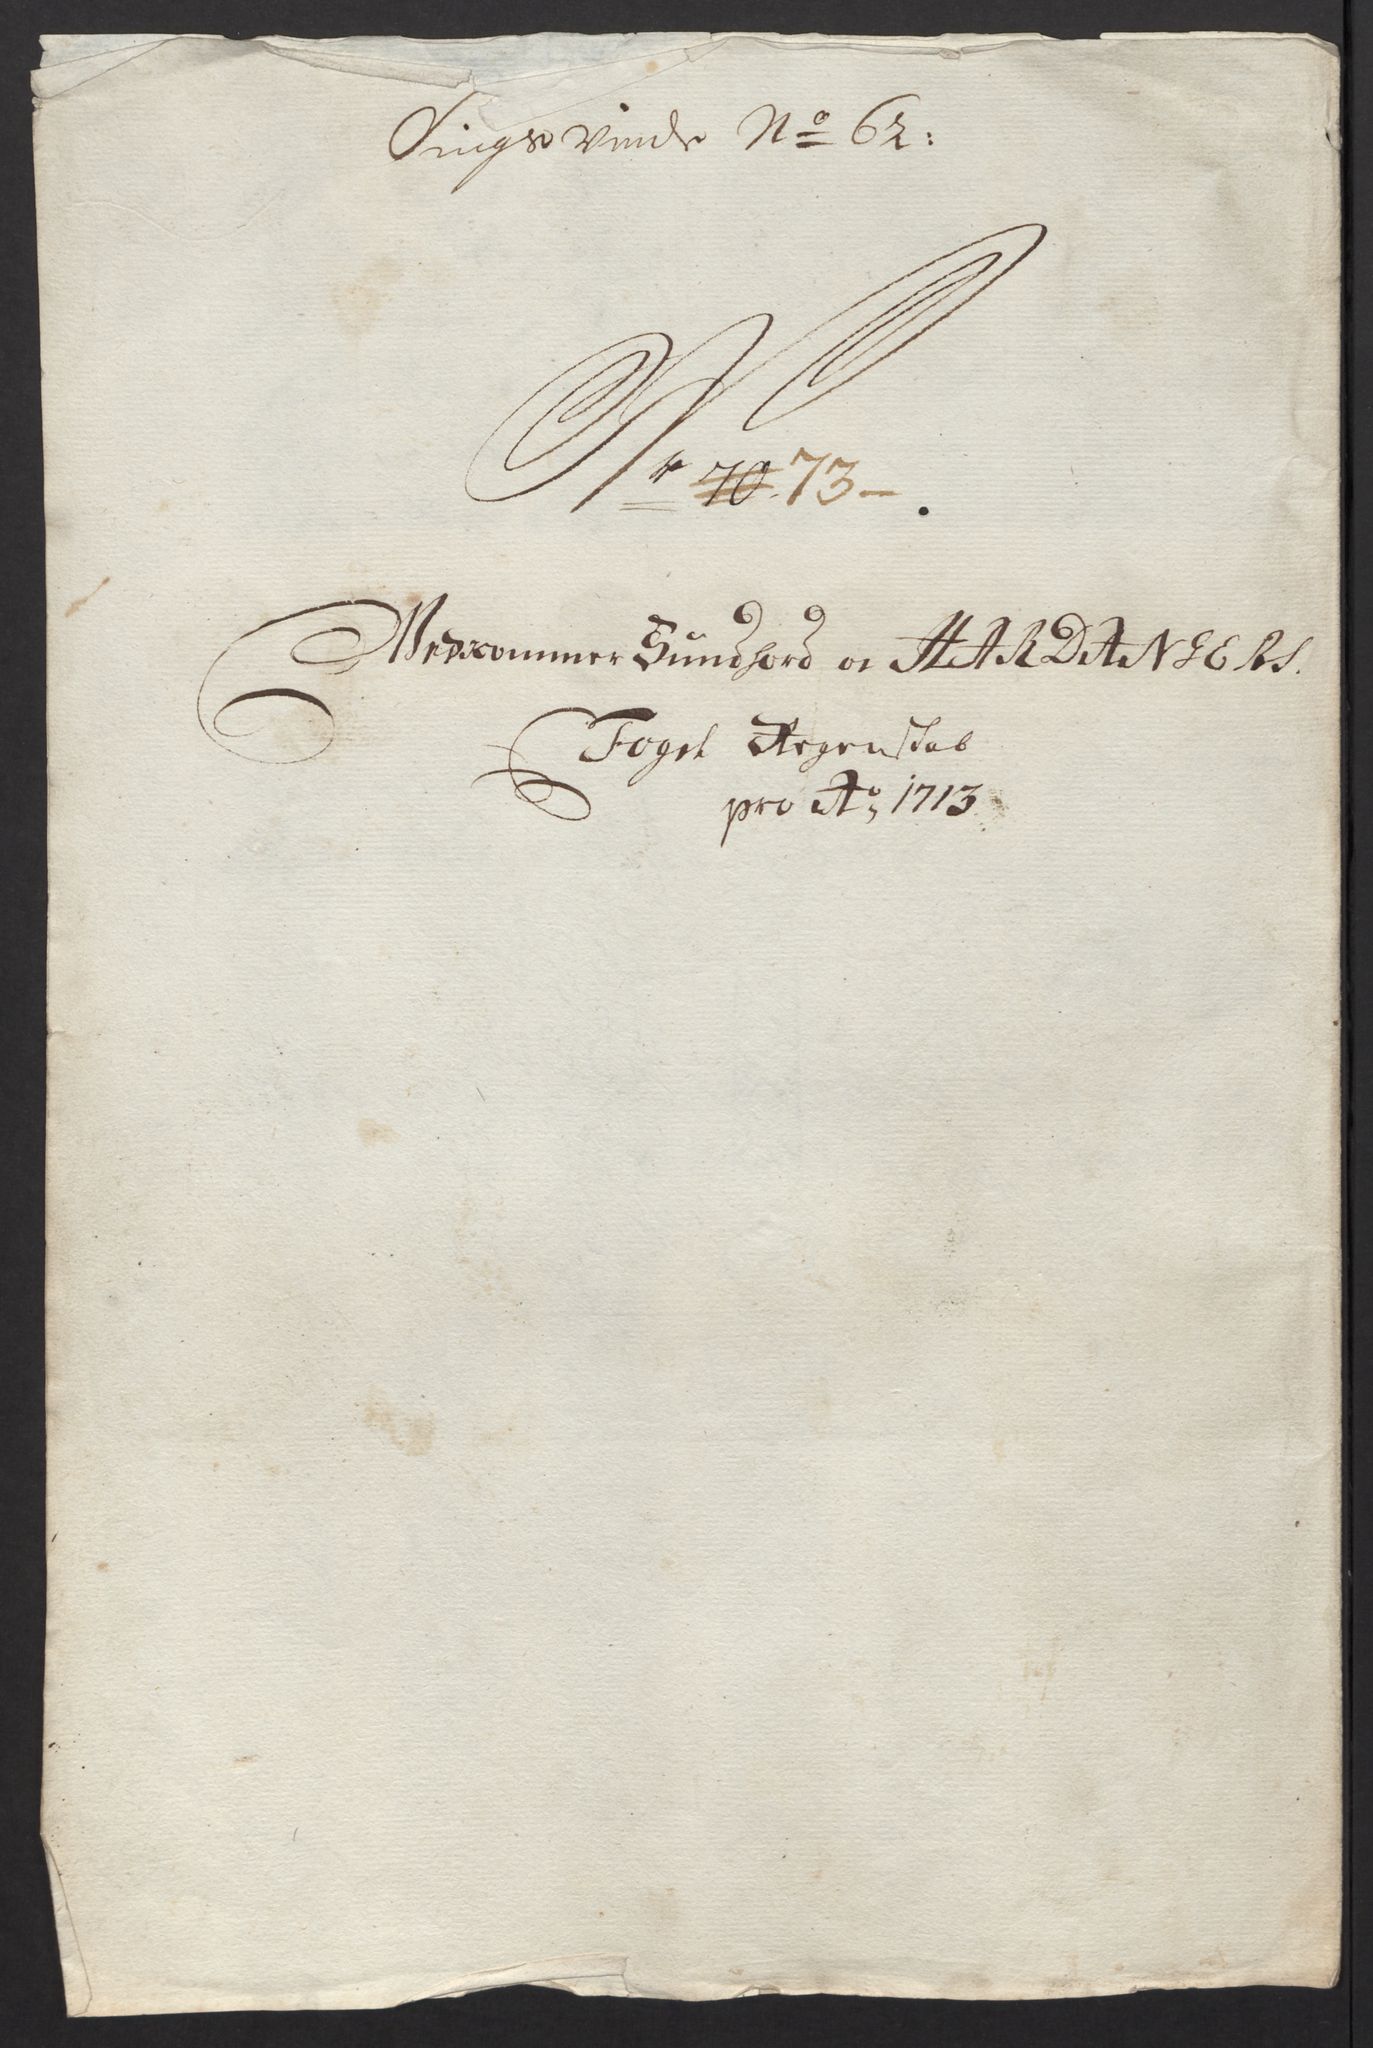 Tingsvinde No 62:
Nr 70. 73 –.
Vedkommer Sundhord oc HARDANGERS.
Foget Regenskab
pro Ao, 1713